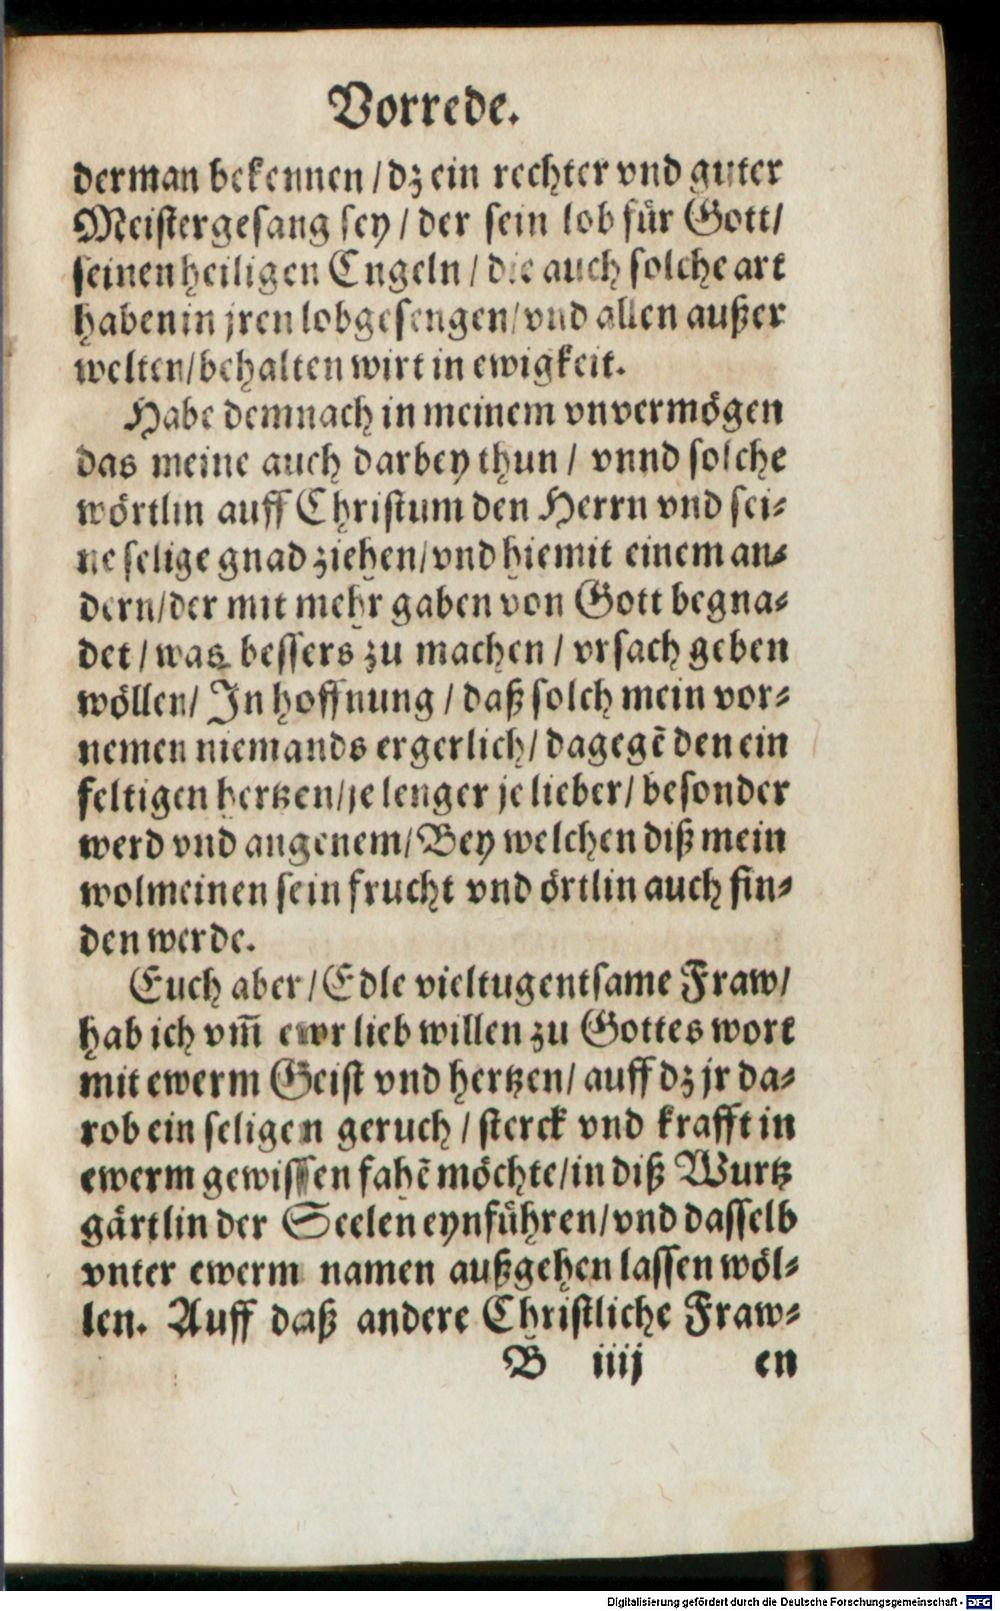 Vorrede.
derman bekennen / dz ein rechter vnd guter
Meistergesang sey / der sein lob für Gott /
seinen heiligen Engeln / die auch solche art
haben in jren lobgesengen / vnd allen außer
welten / behalten wirt in ewigkeit.
Habe demnach in meinem vnvermögen
das meine auch darbey thun / vnnd solche
wörtlin auff Christum den Herrn vnd sei-
ne selige gnad ziehen / vnd hiemit einem an-
dern / der mit mehr gaben von Gott begna-
det / was bessers zu machen / vrsach geben
wöllen / In hoffnung / daß solch mein vor-
nemen niemands ergerlich / dagegẽ den ein
feltigen hertzen / je lenger je lieber / besonder
werd vnd angenem / Bey welchen diß mein
wolmeinen sein frucht vnd örtlin auch fin-
den werde.
Euch aber / Edle vieltugentsame Fraw /
hab ich vm̃ ewr lieb willen zu Gottes wort
mit ewerm Geist vnd hertzen / auff dz jr da-
rob ein seligen geruch / sterck vnd krafft in
ewerm gewissen fahẽ möchte / in diß Wurtz
gärtlin der Seelen eynführen / vnd dasselb
vnter ewerm namen außgehen lassen wöl-
len. Auff daß andere Christliche Fraw-
B iiij en
Digitalisierung gefördert durch die Deutsche Forschungsgemeinschaft - DFG